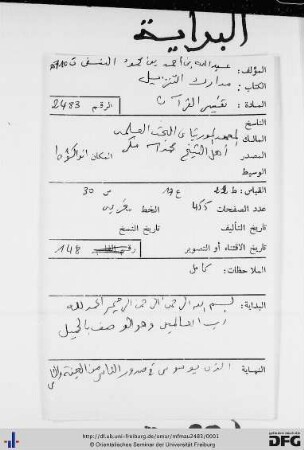 البداية
المؤلف: عبد الله بن احمد بن محمود النسفي ت 710
الكتاب: مدارك التنزيل
المادة: تفسير القرآن الرقم 2483
الناسخ
المالك المعهد الموريتاني للبحث العلمي
المصدر أهل الشيخ المكان
الوسيط
القياس: ط 22 ع 17 س 30
عدد الصفحات 455 الخط مغربي
تاريخ التأليف تاريخ النسخ
تاريخ الاقتناء أو التصوير رقم 148
الملاحظات: كامل
البداية: بسم الله الرحمن الرحيم الحمد لله
رب العالمين
النهاية الذي يوسوس في صدور الناس من الجنة والناس
http://dl.ub.uni-freiburg.de/omar/mfmau2483/0001
© Orientalisches Seminar der Universität Freiburg
gefördert durch
DFG